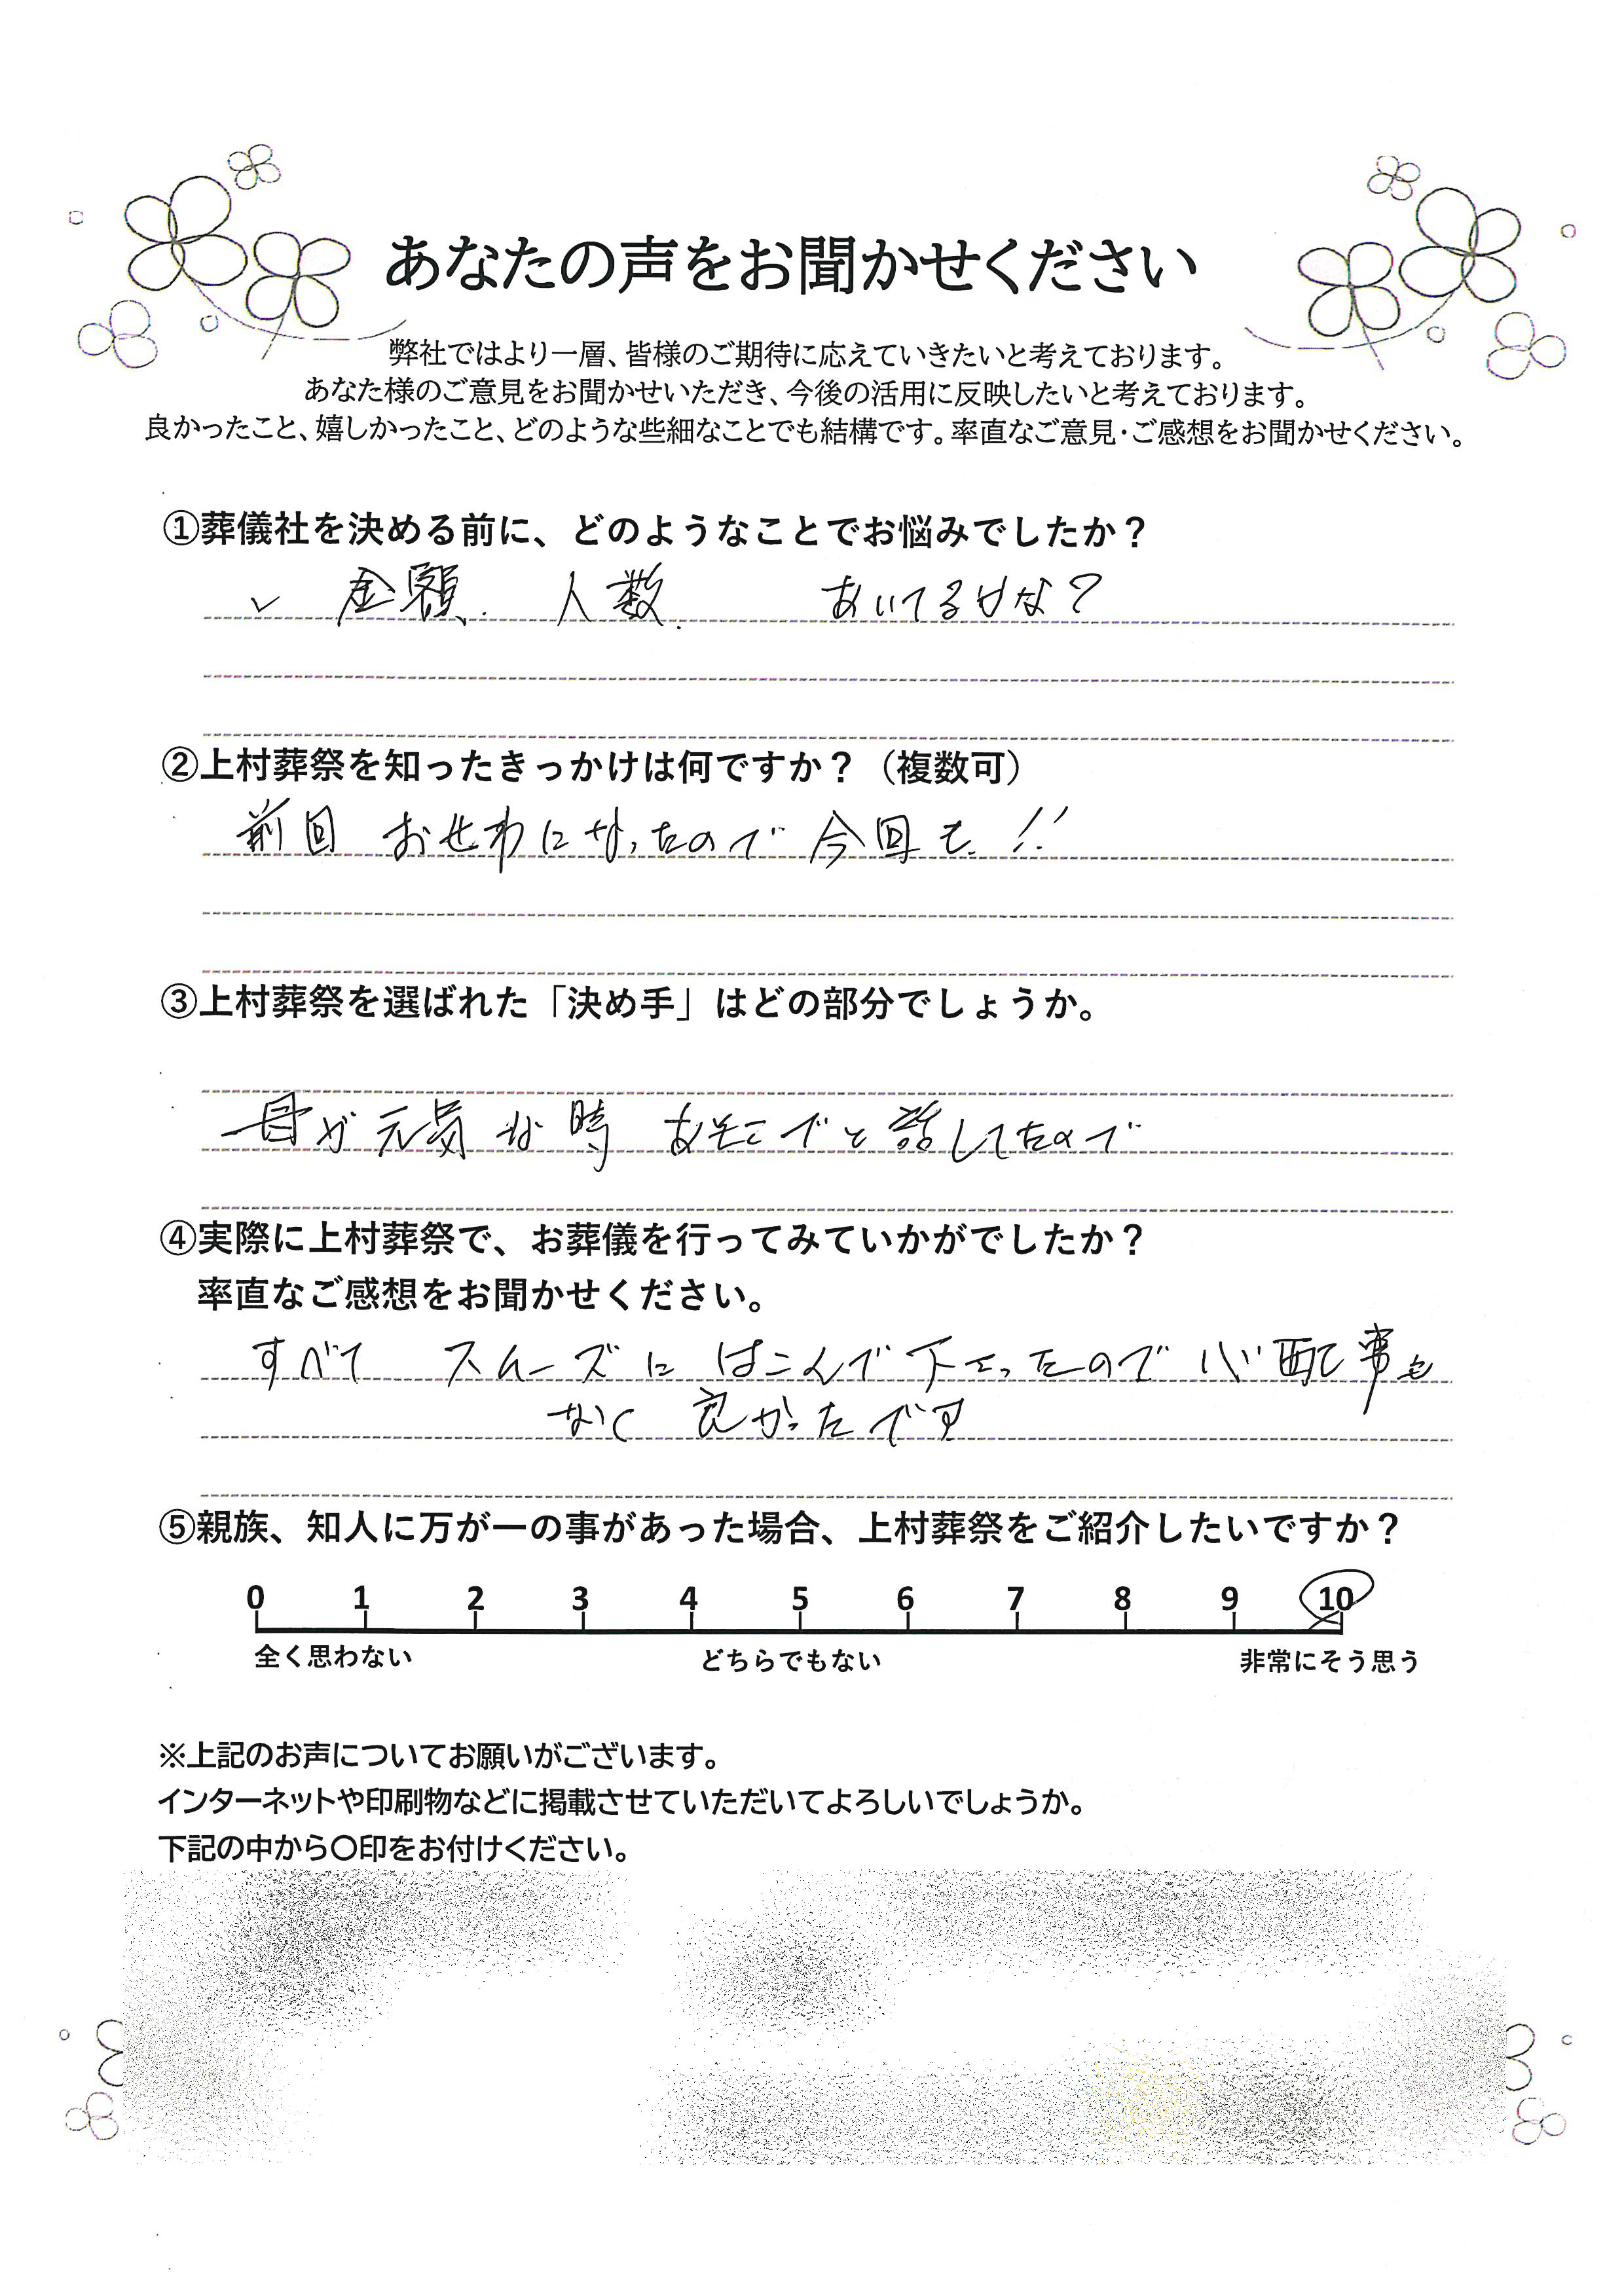 あなたの声をお聞かせください
弊社ではより一層、皆様のご期待に応えていきたいと考えております。
あなた様のご意見をお聞かせいただき、今後の活用に反映したいと考えております。
良かったこと、嬉しかったこと、どのような些細なことでも結構です。率直なご意見・ご感想をお聞かせください。
①葬儀社を決める前に、どのようなことでお悩みでしたか？
✓ 金額. 人数. あいてるかな？
②上村葬祭を知ったきっかけは何ですか？（複数可）
前回 おせわになったので 今回も!!
③上村葬祭を選ばれた「決め手」はどの部分でしょうか。
母が元気な時 あそこでと話してたので
④実際に上村葬祭で、お葬儀を行ってみていかがでしたか？
率直なご感想をお聞かせください。
すべて スムーズに はこんで下さったので 心配事も
なく 良かったです
⑤親族、知人に万が一の事があった場合、上村葬祭をご紹介したいですか？
0 1 2 3 4 5 6 7 8 9 10
全く思わない どちらでもない 非常にそう思う
※上記のお声についてお願いがございます。
インターネットや印刷物などに掲載させていただいてよろしいでしょうか。
下記の中から〇印をお付けください。